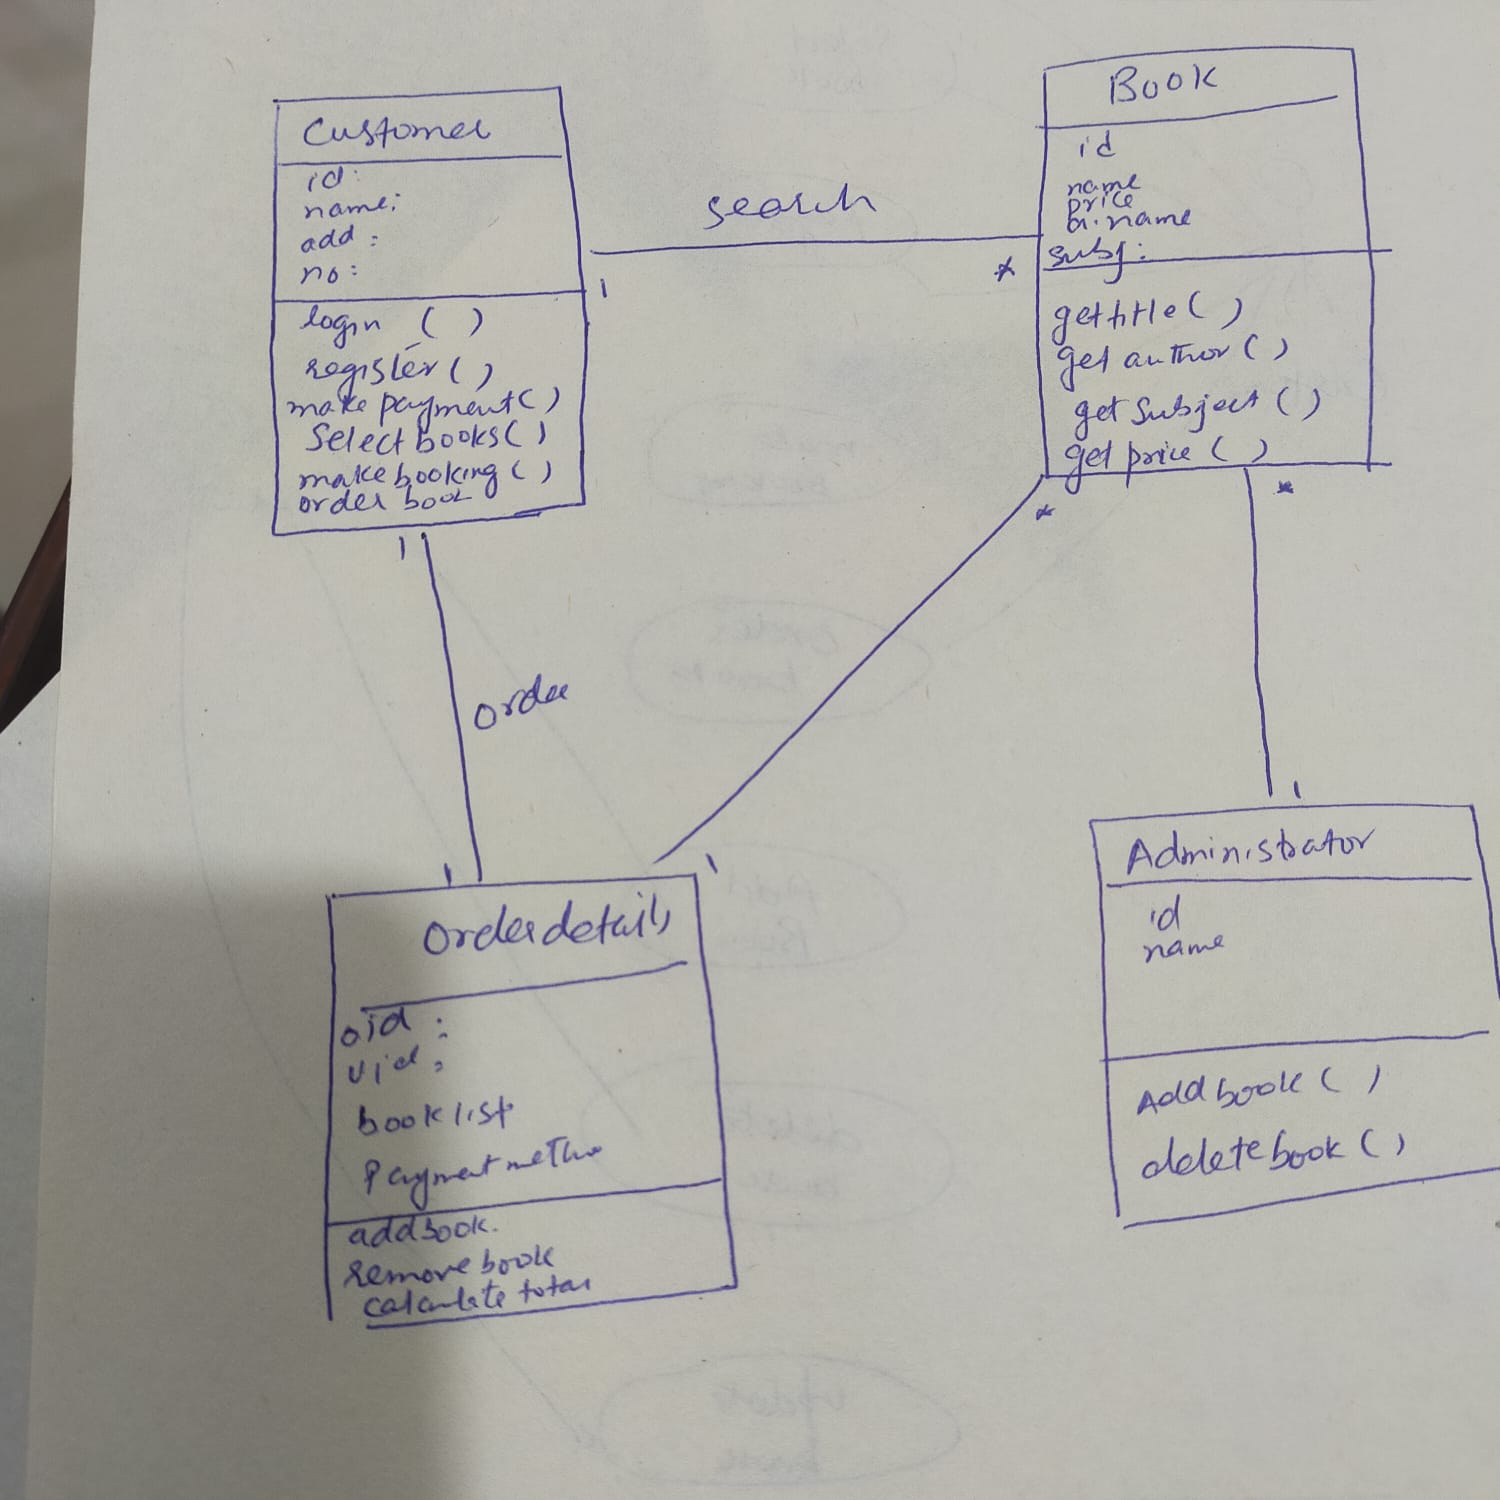 Customer
id:
name:
add :
no:
login ( )
register ( )
make payment( )
Select books( )
make booking ( )
order book
1
search
*
Book
id
name
price
a.name
subj:
gettitle( )
get author ( )
get Subject ( )
get price ( )
*
*
1
order
1
1
Orderdetails
oid :
uid :
book list
Payment metho
addbook.
remove book
calculate total
1
Administrator
id
name
Add book ( )
delete book ( )